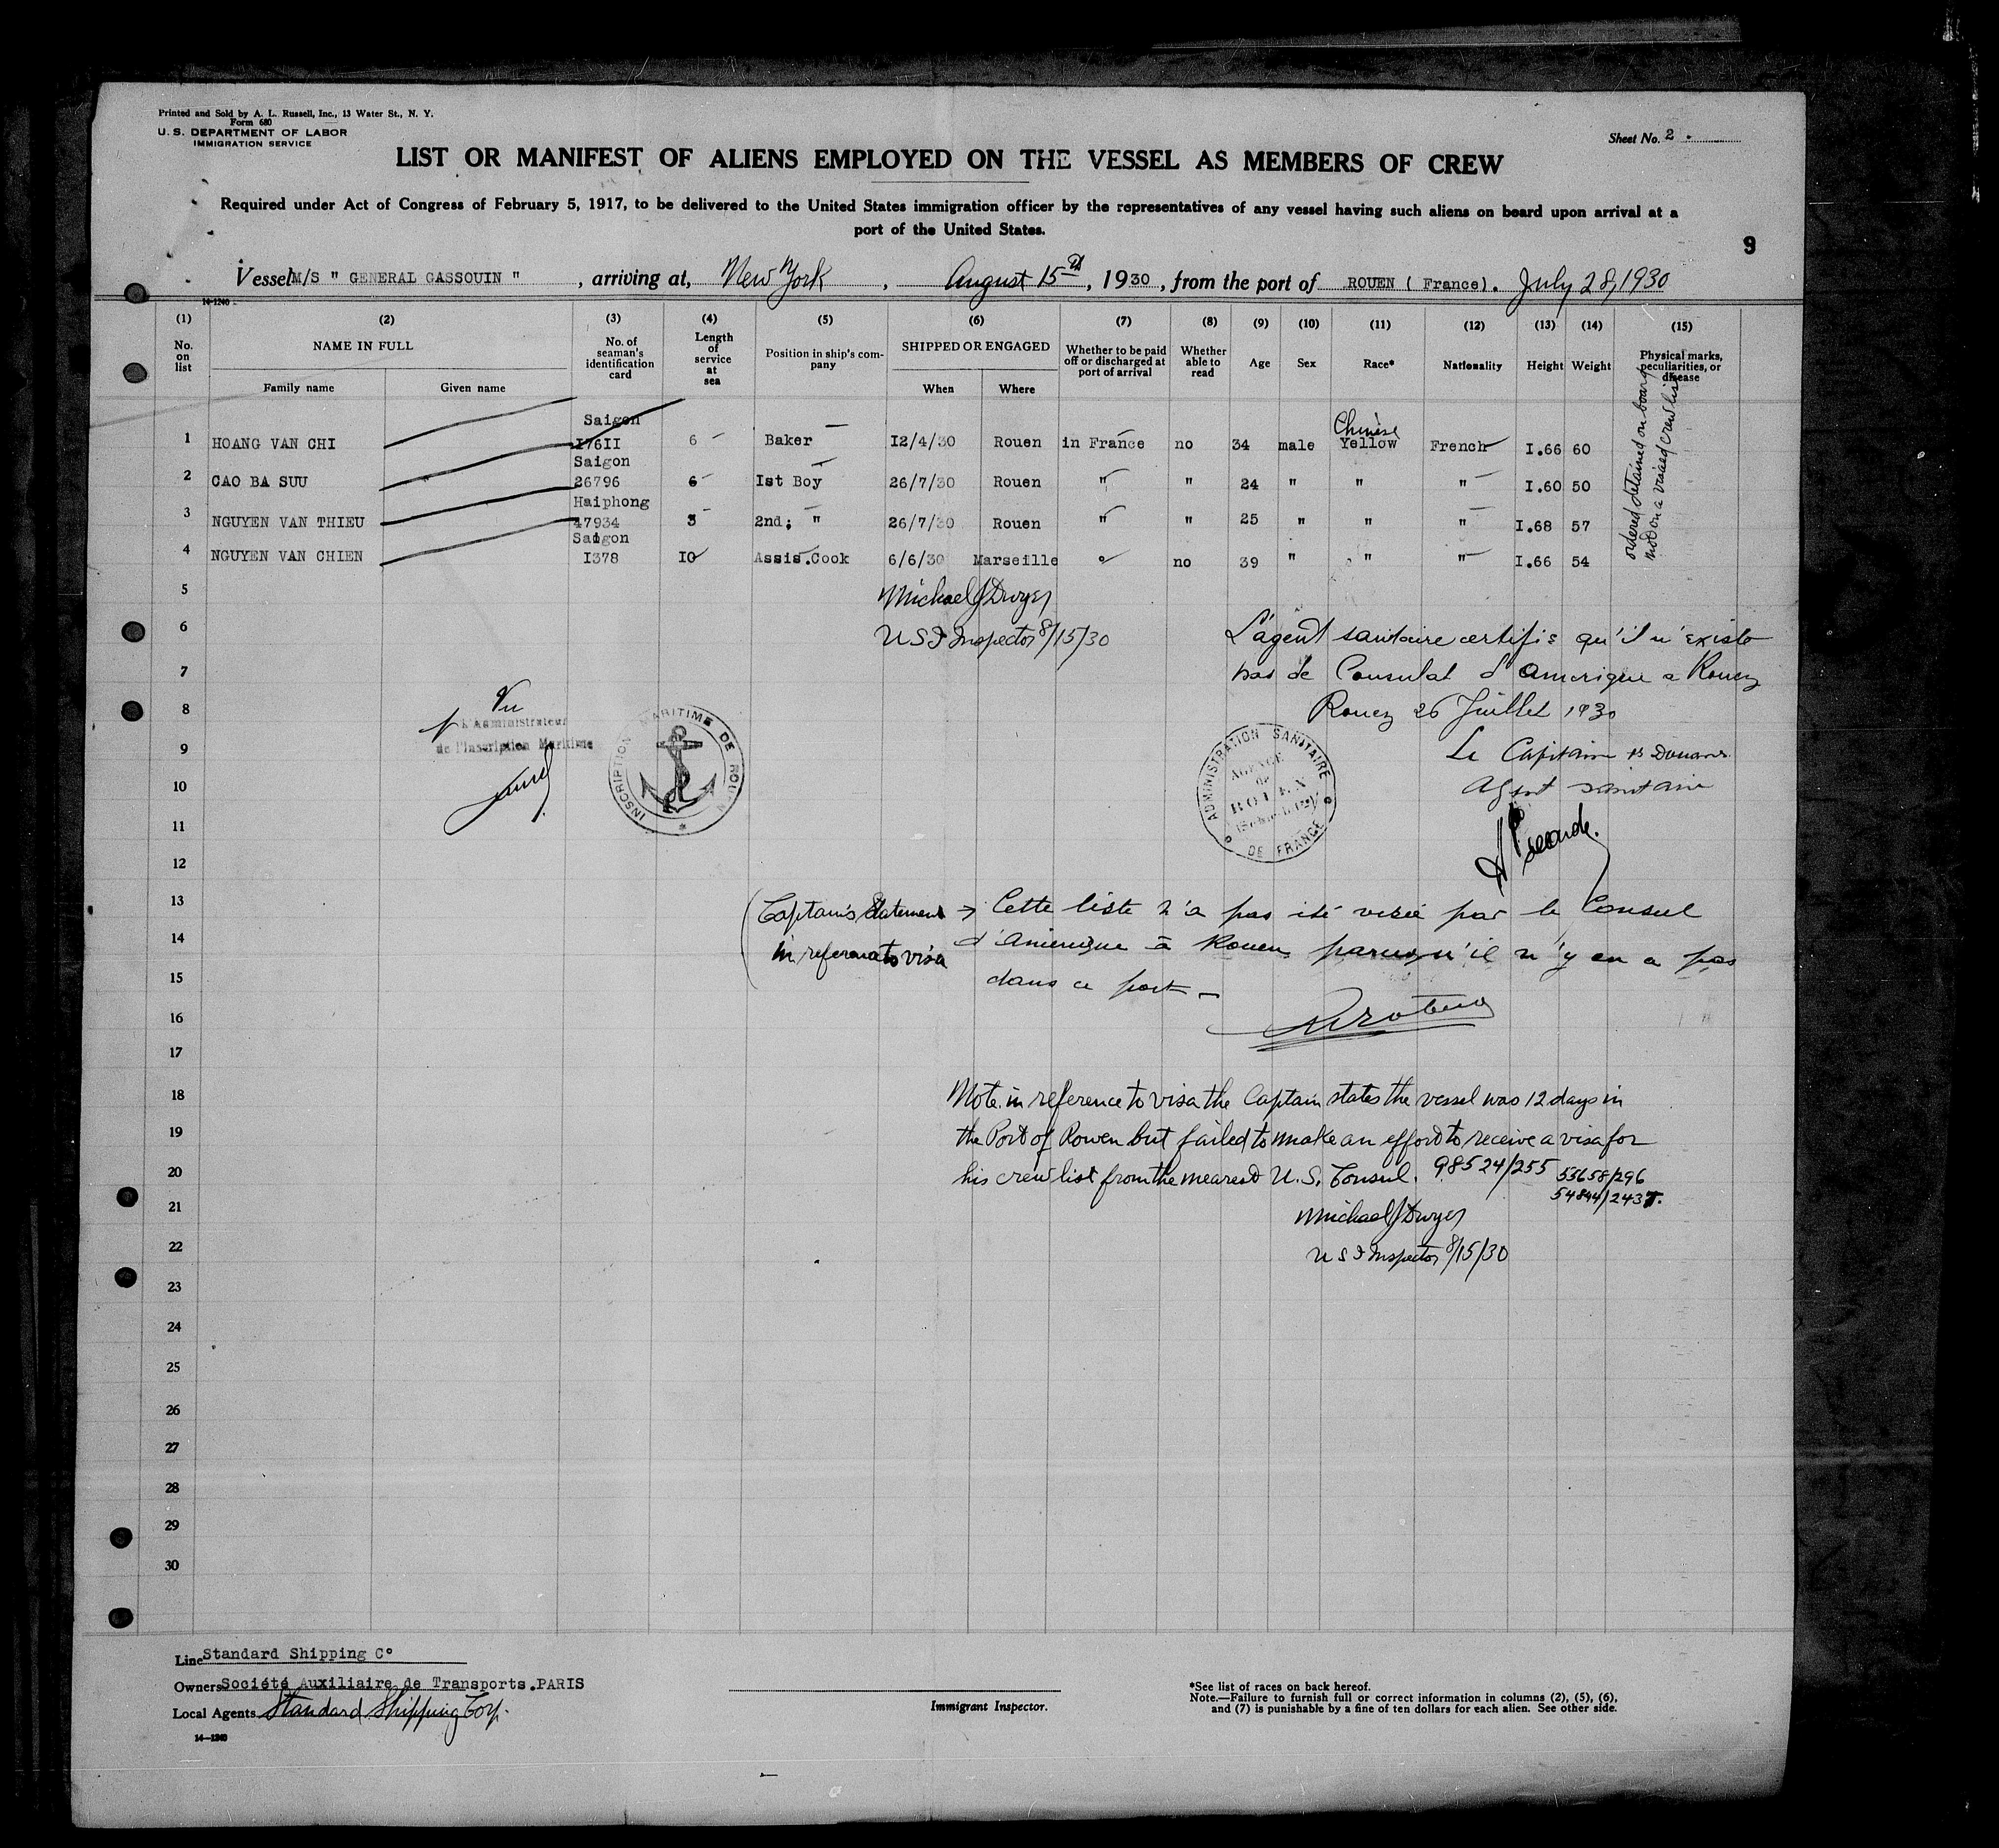 Printed and Sold by A. L. Russell, Inc., 13 Water St., N. Y.
Form 680
U. S. DEPARTMENT OF LABOR
IMMIGRATION SERVICE
Sheet No. 2
LIST OR MANIFEST OF ALIENS EMPLOYED ON THE VESSEL AS MEMBERS OF CREW
Required under Act of Congress of February 5, 1917, to be delivered to the United States immigration officer by the representatives of any vessel having such aliens on board upon arrival at a
port of the United States.
9
Vessel M/S " GENERAL GASSOUIN " , arriving at, New York , August 15th , 1930 , from the port of ROUEN ( France). July 28, 1930
14-1240
(1) (2) (3) (4) (5) (6) (7) (8) (9) (10) (11) (12) (13) (14) (15)
No. on list NAME IN FULL No. of seaman's identification card Length of service at sea Position in ship's company SHIPPED OR ENGAGED Whether to be paid off or discharged at port of arrival Whether able to read Age Sex Race* Nationality Height Weight Physical marks, peculiarities, or disease
Family name Given name When Where
Saigon Chinese
1 HOANG VAN CHI I76II 6 Baker I2/4/30 Rouen in France no 34 male Yellow French I.66 60
Saigon
2 CAO BA SUU 26796 6 Ist Boy 26/7/30 Rouen " " 24 " " " I.60 50
Haiphong
3 NGUYEN VAN THIEU 47934 3 2nd; " 26/7/30 Rouen " " 25 " " " I.68 57
Saigon
4 NGUYEN VAN CHIEN I378 IO Assis.Cook 6/6/30 Marseille no 39 " " " I.66 54
ordered detained on board
not on a visaed crew list
5
Michael J Dwyer
6
U S I Inspector 8/15/30
L'agent sanitaire certifie qu'il n'existe
7
pas de Consulat d'Amerique a Rouen
8
Rouen 26 Juillet 1930
Vu
L'Administrateur
de l'Inscription Maritime
INSCRIPTION MARITIME DE ROUEN
ADMINISTRATION SANITAIRE DE FRANCE
AGENCE
de
ROUEN
9
Le Capitaine Douanes
10
Agent sanitaire
11
12
13
(Captain's statement → Cette liste n'a pas été visée par le Consul
14
in reference to visa d'Amerique à Rouen parcequ'il n'y en a pas
15
dans ce port —
16
17
18
Note. in reference to visa the Captain states the vessel was 12 days in
19
the Port of Rouen but failed to make an effort to receive a visa for
20
his crew list from the nearest U. S. Consul. 98524/255 53658/296
54844/243
21
Michael J Dwyer
22
U S I Inspector 8/15/30
23
24
25
26
27
28
29
30
Line Standard Shipping C°
Owners Société Auxiliaire de Transports.PARIS
Local Agents Standard Shipping Corp.
14-1240
Immigrant Inspector.
*See list of races on back hereof.
Note.—Failure to furnish full or correct information in columns (2), (5), (6),
and (7) is punishable by a fine of ten dollars for each alien. See other side.